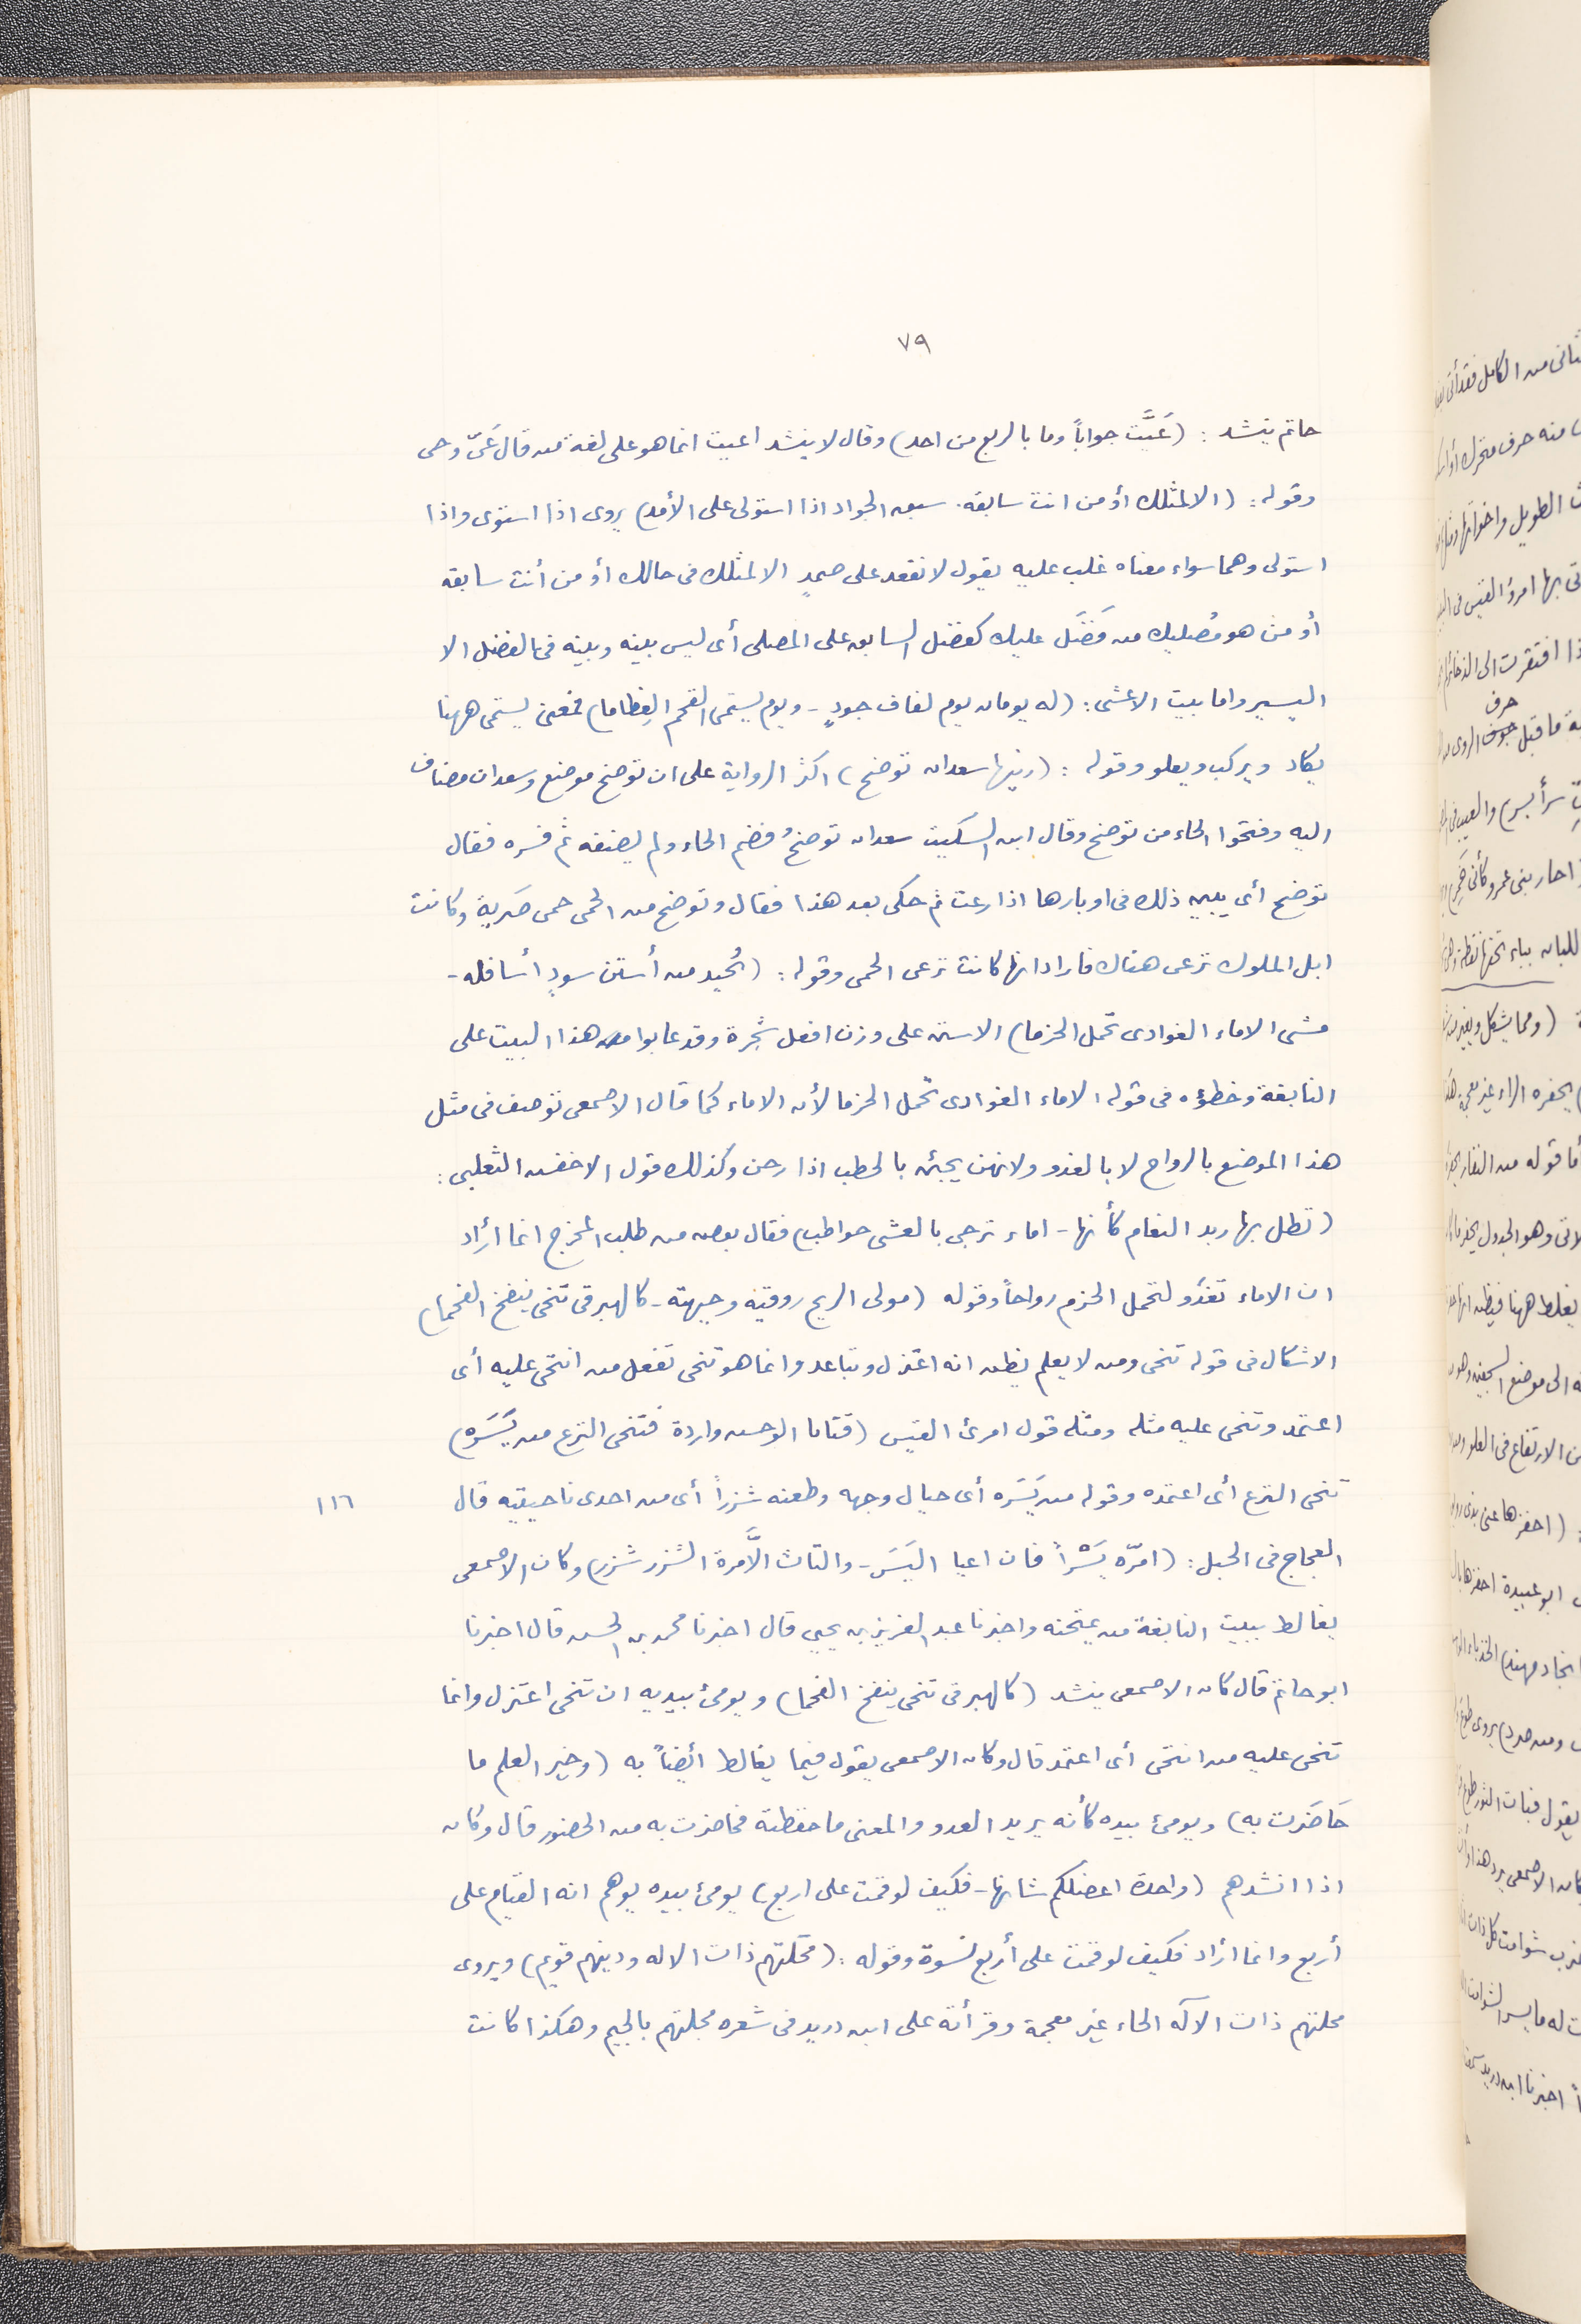 ٧٩
حاتم ينشد : (عَيَّت جواباً وما بالربع من احد) وقال لا ينشد اعيت انما هو على لغة من قال عَىّ وحى
وقوله : (الا لمثلك أو من انت سابقه . سبق الجواد اذا استولى على الأمد) يروى اذا استوى واذا
استولى وهما سواء معناه غلب عليه يقول لا نقعد على ضمدٍ الا لمثلك فى حالك أو من أنت سابقه
أو من هو مُصليك من فَضَل عليك كفضل السابق على المصلى أى ليس بينه وبينه فى الفضل الا
اليسير واما بيت الاعشى : (له يومان يوم لعاف جودٍ - ويوم يستمى القحم العِظاما) فمعنى يستمى ههنا
يكاد ويركب ويعلو وقوله : (زينها سعدان توضح) اكثر الرواية على ان توضح موضع وسعدان مضاف
اليه وفتحوا الحاء من توضح وقال ابن السكيت سعدان توضحُ فضم الحاء ولم يضفه ثم فسره فقال
توضح أى يبين ذلك فى اوبارها اذا رعت ثم حكى بعد هذا فقال وتوضح من الحمى حمى ضَرية وكانت
ابل الملوك ترعى هناك فاراد انها كانت ترعى الحمى وقوله : (تُحيد من أستن سودٍ أسافله -
مشى الاماء الغوادى تحمل الحزما) الاستن على وزن افعل شجرة وقد عابوا هذا البيت على
النابغة وخطؤه فى قوله الاماء الغوادى تحمل الحزما لأن الاماء كما قال الاصمعى توصف فى مثل
هذا الموضع بالرواح لا بالغدو ولانهن يجئن بالحطب اذا رحن وكذلك قول الاخنس التغلبى :
(تظل بها ربد النعام كأنها - اماء تزجى بالعشى حواطب) فقال بعض من طلب المخرج انما أراد
ان الاماء تغدُو لتحمل الحزم رواحاً وقوله (مولى الريح روقيه وجبهته - كالهبرقى تنحى ينفخ الفحما)
الاشكال فى قوله تنحى ومن لا يعلم يظن انه اعتزل وتباعد وانما هو تنحى تفعل من انتحى عليه أى
اعتمد وتنحى عليه مثله ومثله قول امرئ القيس (فتانا الوحس واردة فتنحى النزع من يَسَره)
تنحى النزع أى اعتمده وقوله من يَسَره أى حيال وجهه وطعنه شزراً أى من احدى ناحيتيه قال
١١٦
العجاج فى الحبل : (امرّه يَسْراً فان اعيا اليَسَر - والتاث الَّا مِرة الشزر شزر) وكان الاصمعى
يغالط ببيت النابغة من يمتحنه واخبرنا عبد العزيز بن يحيى قال اخبرنا محمد بن الحسن قال اخبرنا
ابو حاتم قال كان الاصمعى ينشد (كالهبرقى تنحى ينفخ الفحما) ويومئ بيديه ان تنحى اعتزل وانما
تنحى عليه من انتحى أى اعتمد قال وكان الاصمعى يقول فيما يغالط أيضاً به (وخير العلم ما
حَاضَرت به) ويومئ بيده كأنه يريد العدو والمعنى ما حفظته فحاضرت به من الحضور قال وكان
اذا انشدهم (واحدة اعضلكم شانها - فكيف لو قمت على اربع) يومئ بيده يوهم انه القيام على
أربع وانما أراد فكيف لو قمت على أربع نسوة وقوله : (محَلتهم ذات الاله ودينهم قويم) ويروى
محلتهم ذات الآله الحاء غير معجمة وقرأته على ابن دريد فى شعره مجلتهم بالجيم وهكذا كانت